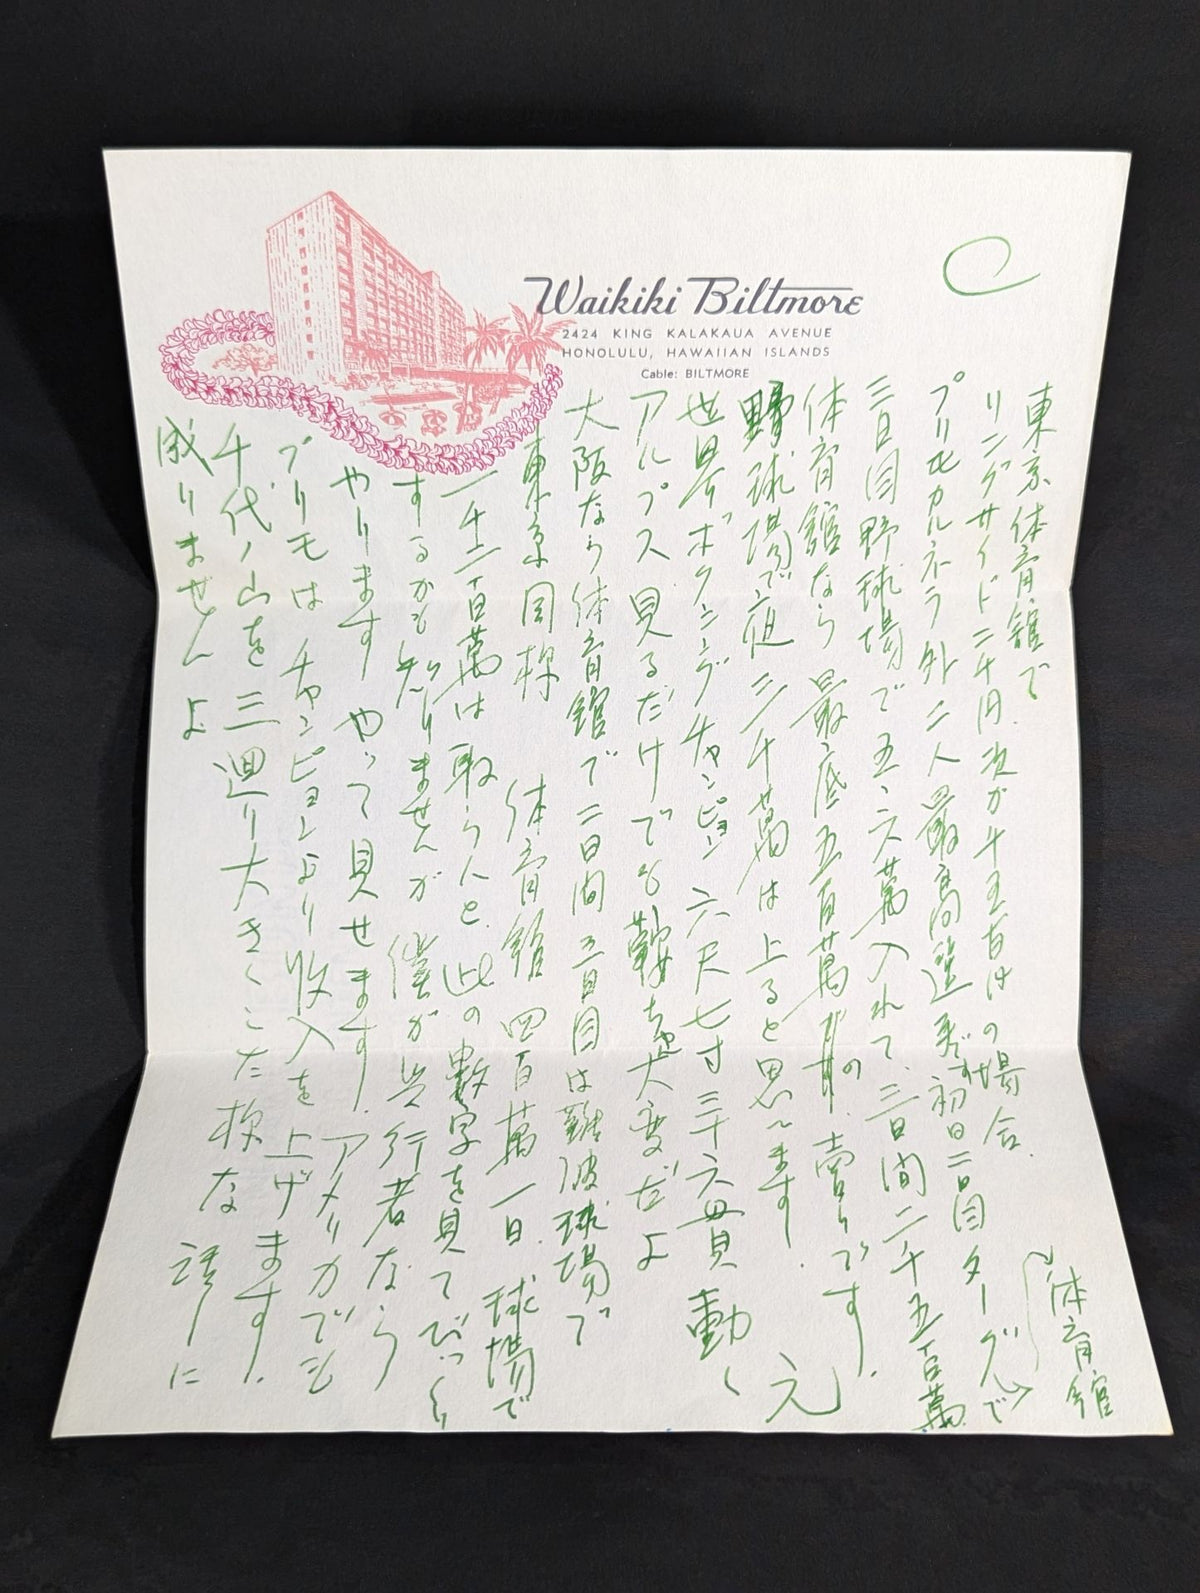 Waikiki Biltmore
2424 KING KALAKAUA AVENUE
HONOLULU, HAWAIIAN ISLANDS
Cable: BILTMORE
体育館
東京体育館で
リングサイド二千円、次が千五百の場合、
プリモカルネラ外二人最高選手 初日二日目 ターグルで
三日目野球場で五、六萬入れて、三日間二千五百萬
体育館なら 最底五百萬の 売りです.
野球場で 二千萬は上ると思います.
世界ボクシングチャンピョン 六尺七寸三十六貫 動く
アルプス 見るだけでも 大変だよ 元
大阪なら体育館で二日間 三日目は難波球場で
東京同様 体育館 四百萬 一日 球場で
一千二百萬は取らんと、此の数字を見てびっくり
するかも知りませんが 僕が興行者なら
やります やって見せます. アメリカでも
プリモは チャンピョンより収入を上げます.
千代ノ山を三廻り大きくした様な
成りませんよ